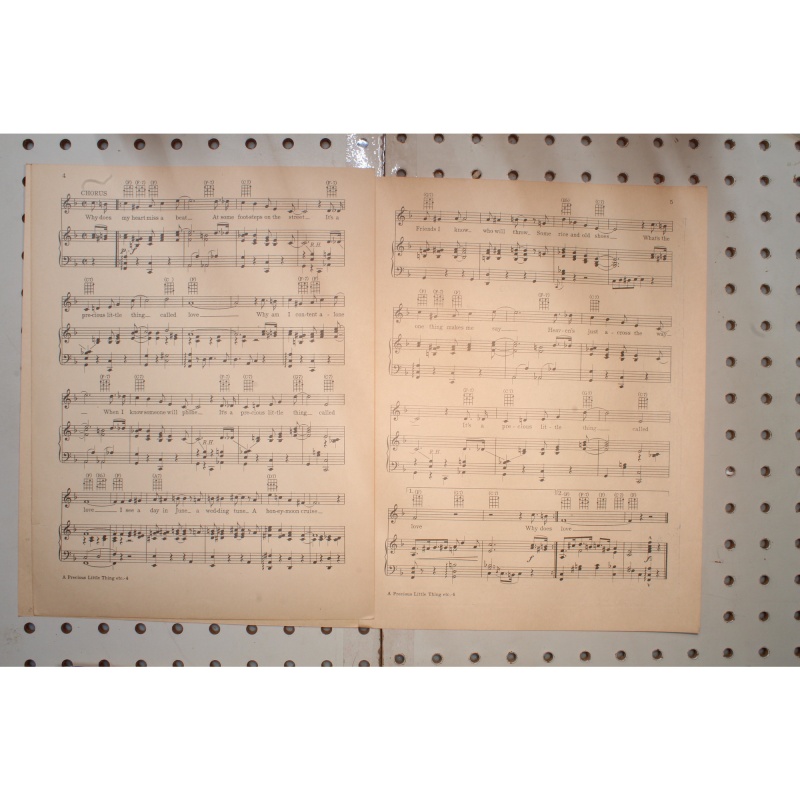 4
CHORUS
Why does my heart miss a beat At some footsteps on the street It's a
R.H.
pre-cious lit-tle thing called love Why am I con-tent a-lone
When I know someone will phone It's a pre-cious lit-tle thing called
R.H.
love I see a day in June a wed-ding tune A hon-ey-moon cruise
A Precious Little Thing etc. 4
5
Friends I know who will throw Some rice and old shoes What's the
use thing makes me say Heav-en's just a-cross the way
It's a pre-cious lit-tle thing called
R.H.
1.
2.
love Why does love
f
f
A Precious Little Thing etc. 4